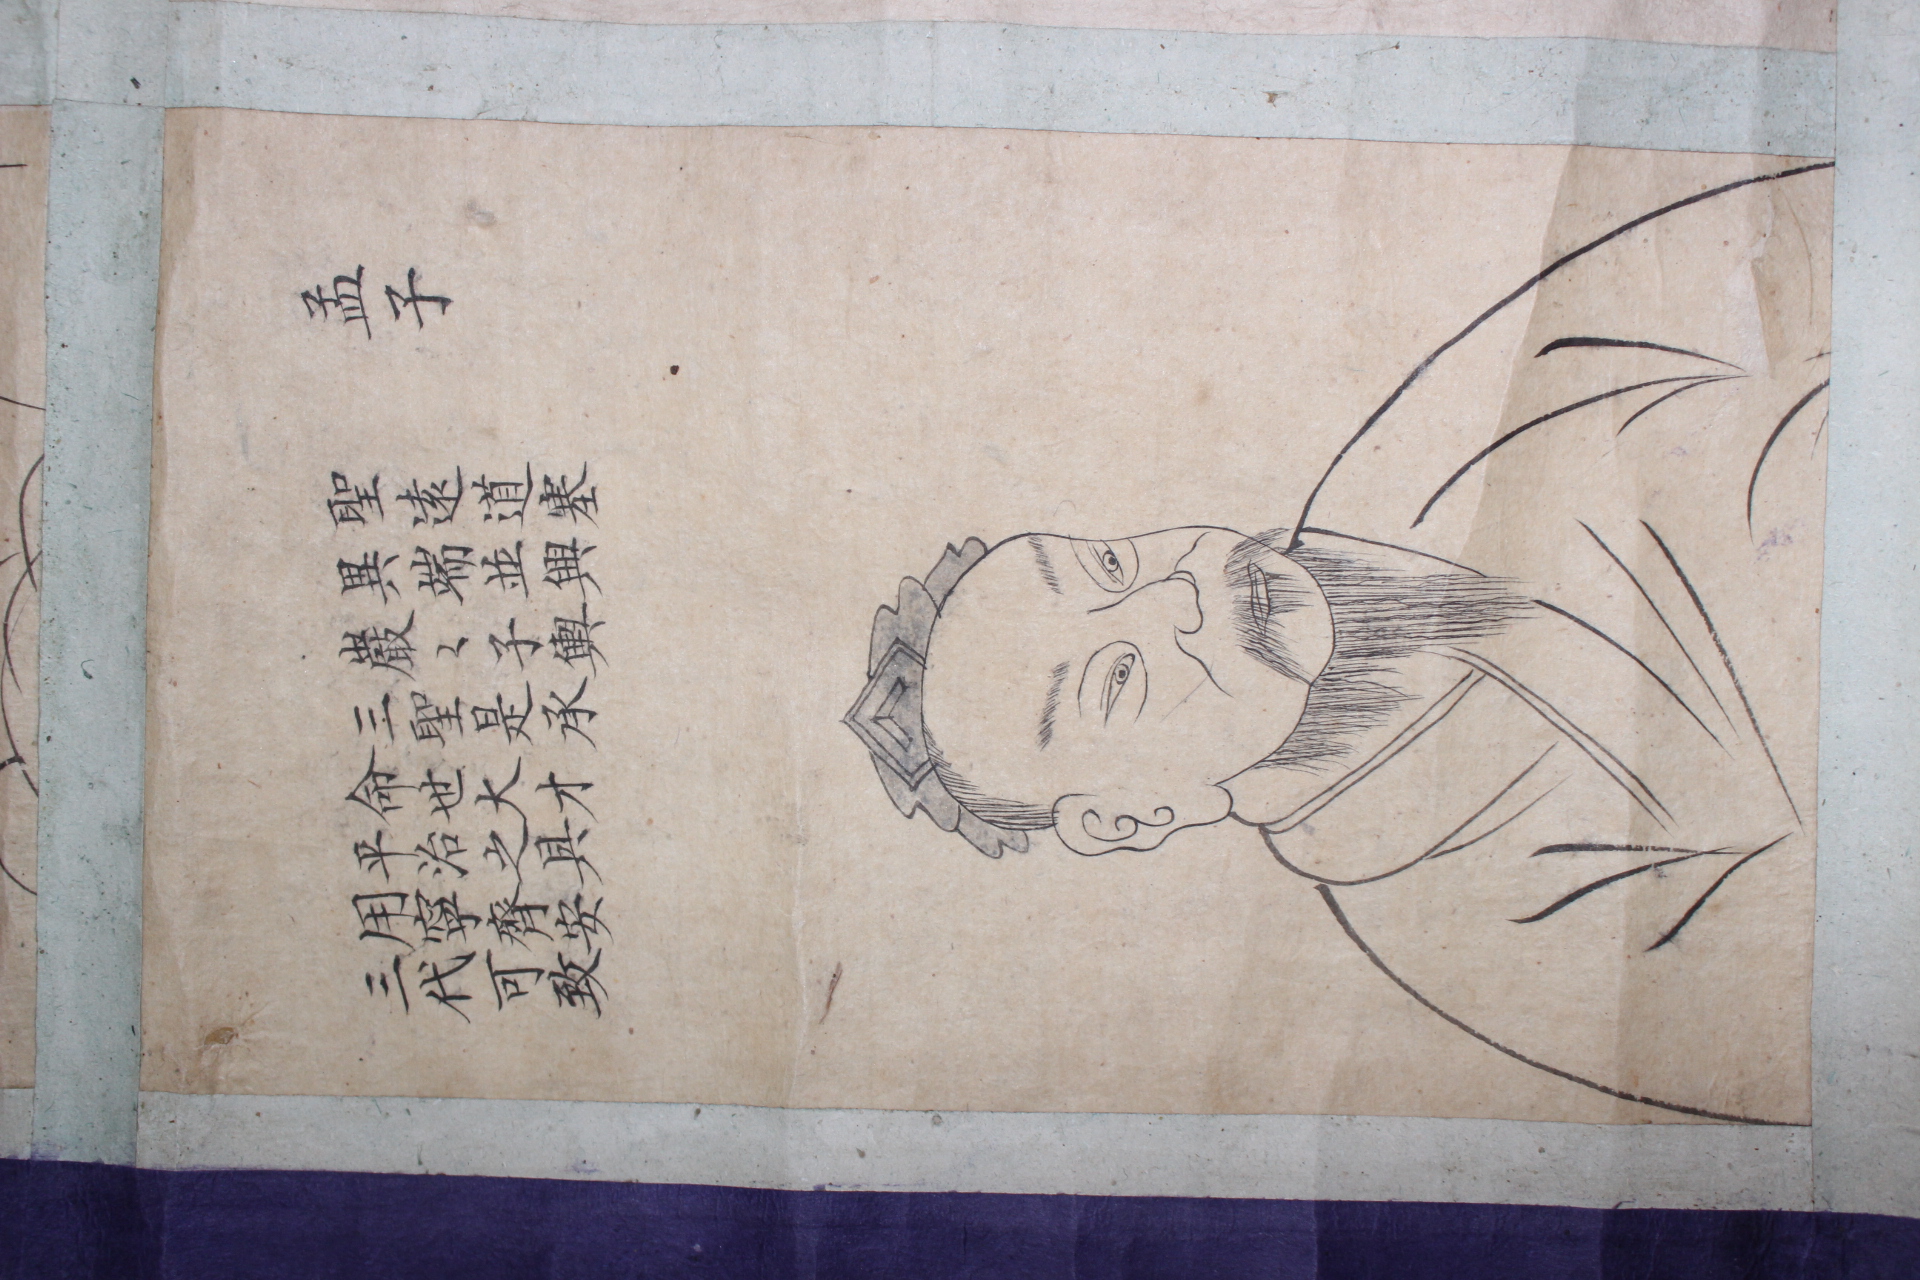 孟子
聖遠道塞
異端並興
巖〻子輿
三聖是承
命世大才
平治之具
用寧齊安
三代可致